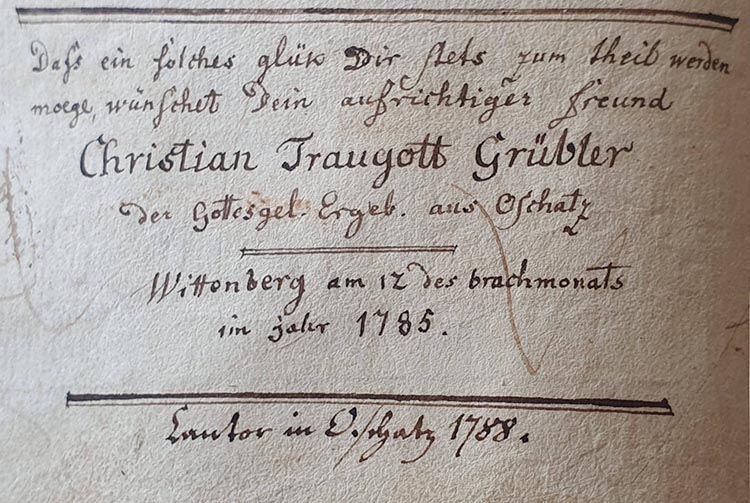 Daſs ein ſolches glük Dir ſtets zum theil werden
moege, wünſchet Dein aufrichtiger freund
Christian Traugott Grübler
der Gottesgel. Ergeb. aus Oſchatz
Wittenberg am 12 des brachmonats
im jahr 1785.
Cantor in Oſchatz 1788.